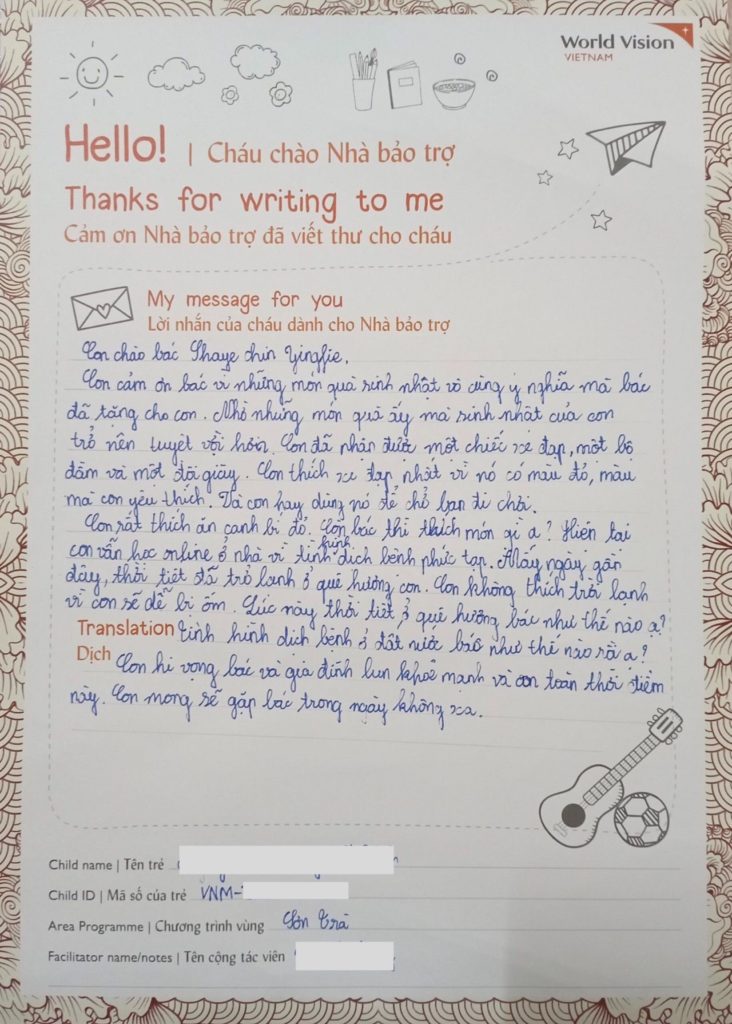 World Vision
VIETNAM
Hello! | Cháu chào Nhà bảo trợ
Thanks for writing to me
Cảm ơn Nhà bảo trợ đã viết thư cho cháu
My message for you
Lời nhắn của cháu dành cho Nhà bảo trợ
Con chào bác Shaye chin Yingjie.
Con cảm ơn bác vì những món quà sinh nhật vô cùng ý nghĩa mà bác
đã tặng cho con. Nhờ những món quà ấy mà sinh nhật của con
trở nên tuyệt vời hơn. Con đã nhận được một chiếc xe đạp, một bộ
đầm và một đôi giày. Con thích xe đạp nhất vì nó có màu đỏ, màu
mà con yêu thích. Và con hay dùng nó để chở bạn đi chơi.
Con rất thích ăn canh bí đỏ. Còn bác thì thích món gì ạ? Hiện tại
con vẫn học online ở nhà vì tình hình dịch bệnh phức tạp. Mấy ngày gần
đây, thời tiết đã trở lạnh ở quê hương con. Con không thích trời lạnh
vì con sẽ dễ bị ốm. Lúc này thời tiết ở quê hương bác như thế nào ạ?
Translation tình hình dịch bệnh ở đất nước bác như thế nào rồi ạ?
Dịch Con hi vọng bác và gia đình lun khoẻ mạnh và an toàn thời điểm
này. Con mong sẽ gặp bác trong ngày không xa.
Child name | Tên trẻ
Child ID | Mã số của trẻ VNM-
Area Programme | Chương trình vùng Sơn Trà
Facilitator name/notes | Tên cộng tác viên